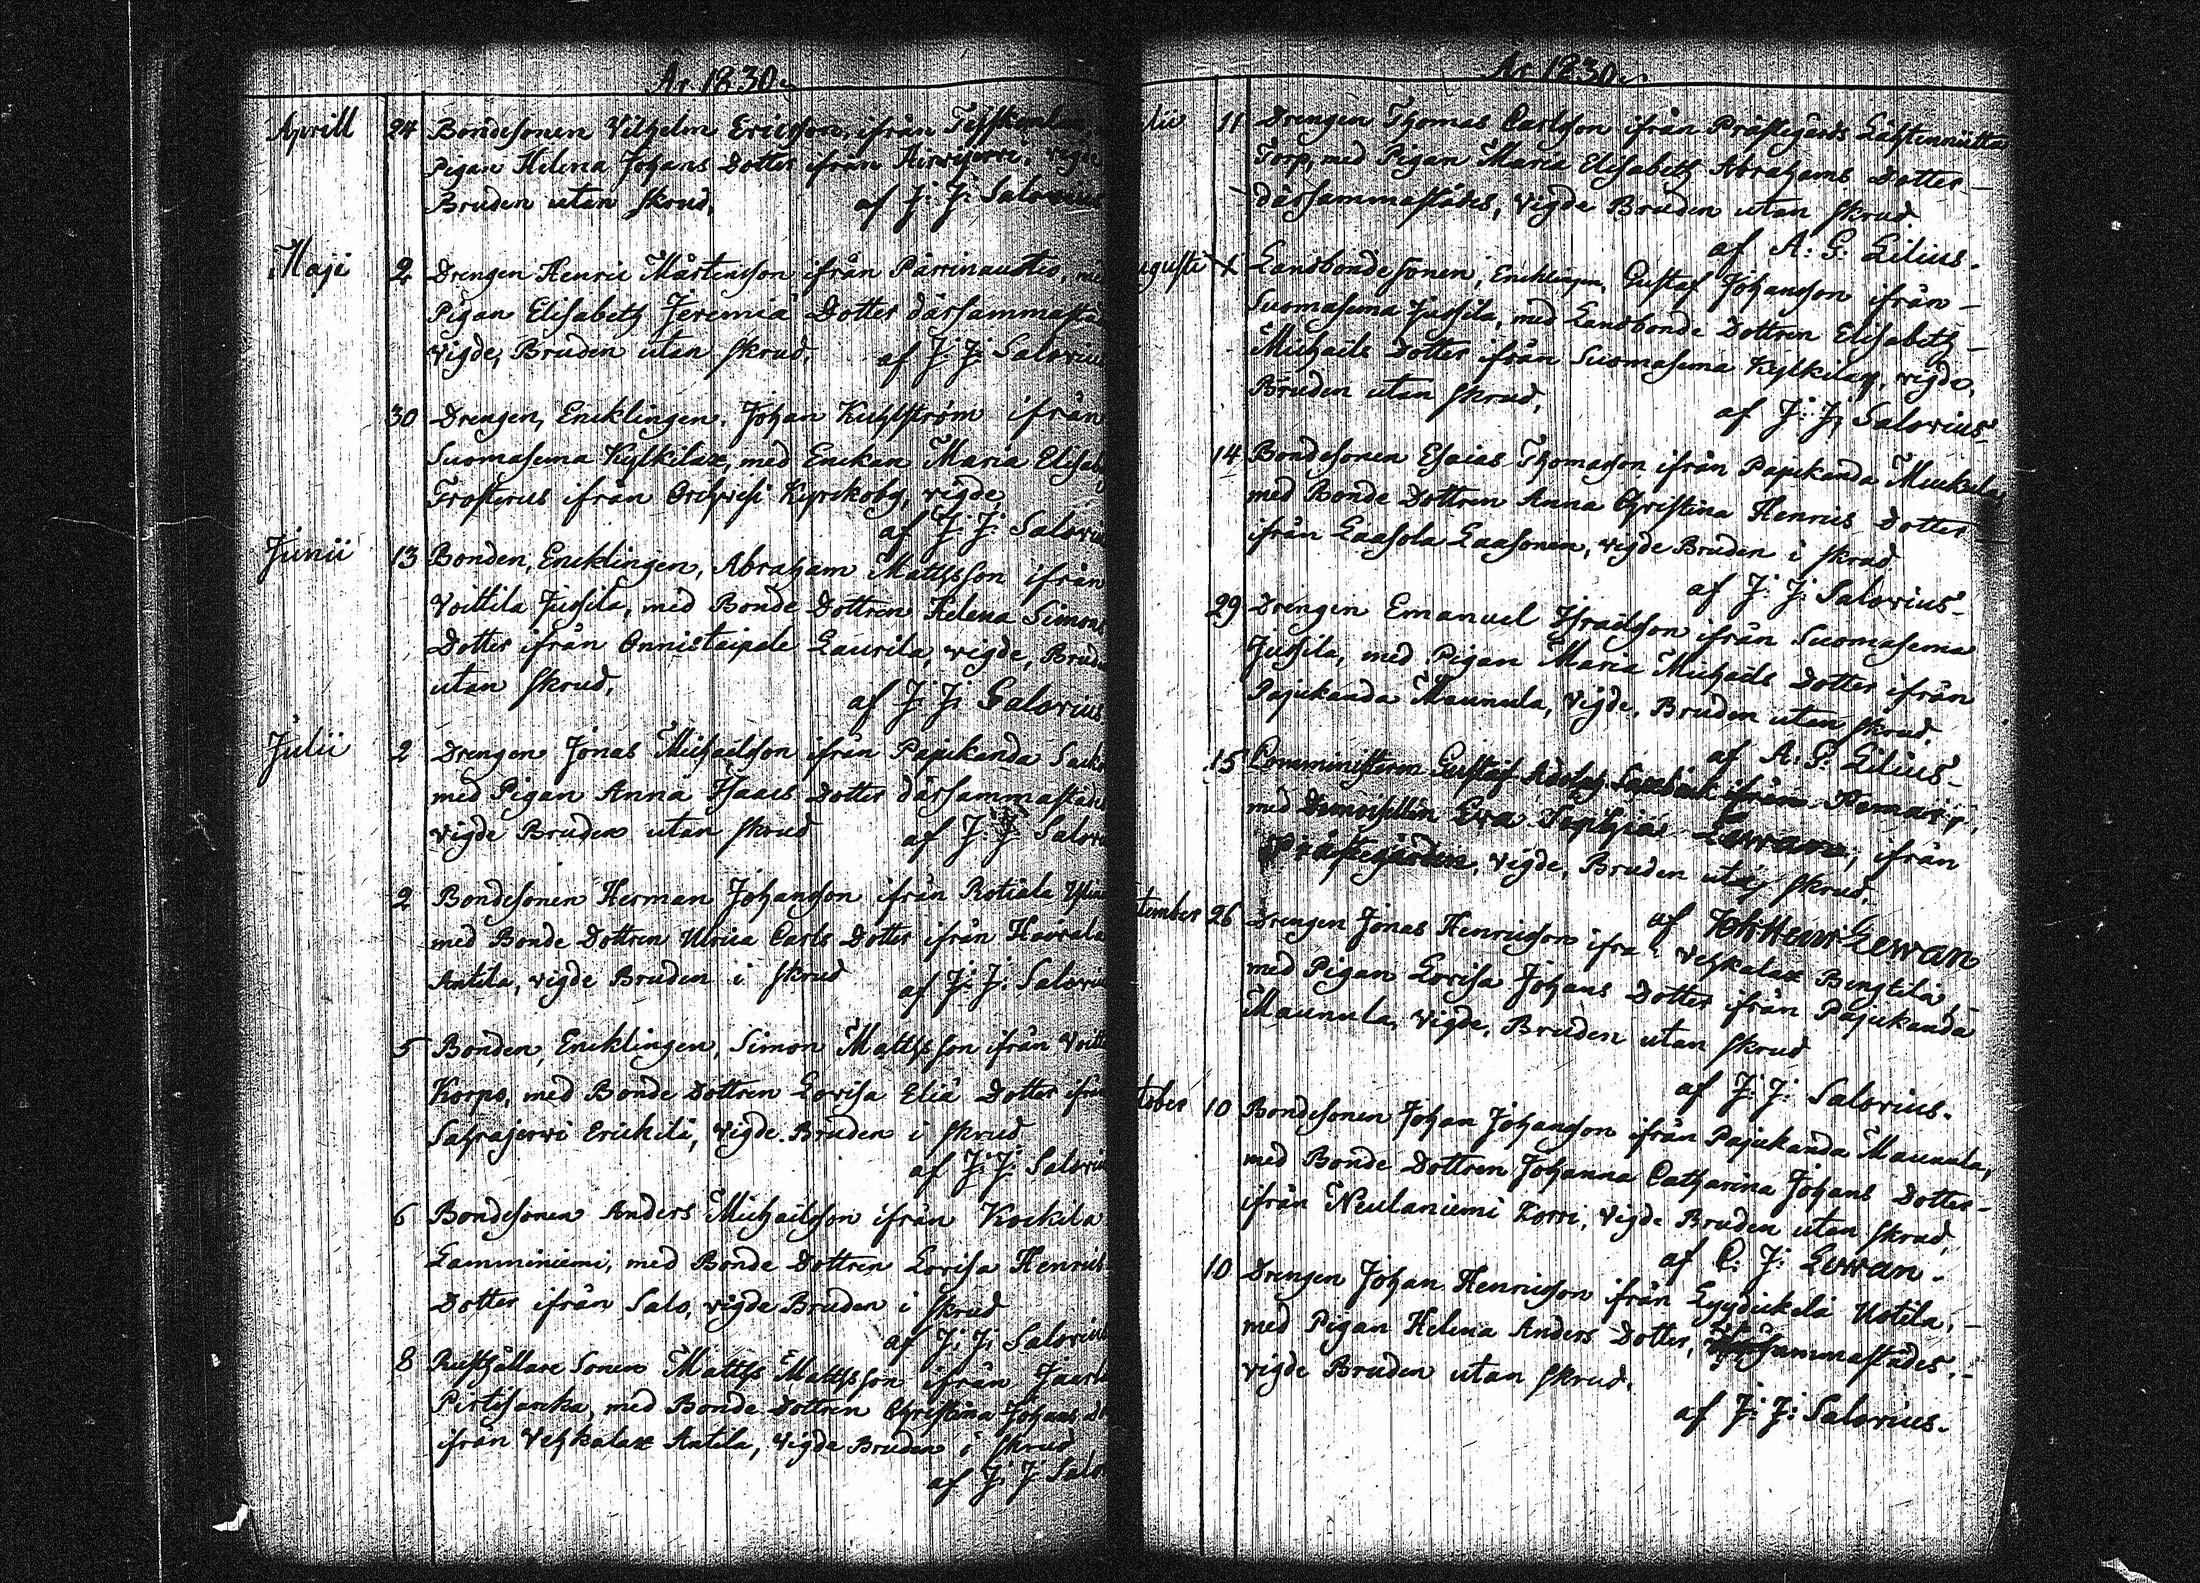 År 1830.
Aprill 24 Bondesonen Vilhelm Ericsson, ifrån
Pigan Helena Johans Dotter ifrån Hirvijervi, vigde
Bruden utan skrud, af J: J: Salovius
Maji 2 Drengen Henric Mårtensson ifrån Pärrinaustio, med
Pigan Elisabeth Jeremiä Dotter därsammastäd
vigde, Bruden utan skrud, af J: J: Salovius
30 Drengen, Encklingen, Johan Kuhlström ifrån
Suomasema Kylkilax, med Enckan Maria Elisab
Frosterus ifrån Kyrckoby, vigde
af J: J: Salovius
Junii 13 Bonden, Encklingen, Abraham Mattsson ifrån
Voittila Jussila, med Bonde Dottren Helena Simons
Dotter ifrån Onnistaipale Laurila, vigde, Bruden
utan skrud, af J: J: Salovius
Julii 2 Drengen Jonas Michaëlsson ifrån Pajukanda
med Pigan Anna Isaacs Dotter därsammastädes
vigde Bruden utan skrud af J: J: Salov
2 Bondesonen Herman Johansson ifrån Rotiala
med Bonde Dottren Ulrica Carls Dotter ifrån Haviala
Antila, vigde Bruden i skrud af J: J: Salovius
5 Bonden, Encklingen, Simon Mattsson ifrån Voitt
Korpo, med Bonde Dottren Lovisa Eliä Dotter ifrån
Sahrajervi Erickilä, vigde Bruden i skrud
af J: J: Salovius
6 Bondesonen Anders Michaëlsson ifrån Kockila
Lamminiemi, med Bonde Dottren Lovisa Henrics
Dotter ifrån Salo, vigde Bruden i skrud
af J: J: Salovius
8 Rusthållare Sonen Matths Mattsson ifrån Jaarla
Pirtisanka, med Bonde Dottren Christina Johans
ifrån Vehkalax Antila, vigde Bruden i skrud
af J: J: Salov
År 1830.
lii 11 Drengen Thomas Carlsson ifrån Prästegårds
Torp, med Pigan Maria Elisabeth Abrahams Dotter
därsammastädes, vigde Bruden utan skrud
af A: G: Lilius.
ugusti Landbondesonen, Encklingen, Gustaf Johansson ifrån
Suomasema Jussila, med Landbonde Dottren Elisabeth
Michaëls Dotter ifrån Suomasema Kylkilax, vigde,
Bruden utan skrud, af J: J: Salovius
14 Bondesonen Esaias Thomasson ifrån Pajukanda Muckala
med Bonde Dottren Anna Christina Henrics Dotter
ifrån Laasola Laasonen, vigde Bruden i skrud
af J: J: Salovius
29 Drengen Emanuel Israëlsson ifrån Suomasema
Jussila, med Pigan Maria Michaëls Dotter ifrån
Pajukanda Maunula, vigde, Bruden utan skrud.
af A: G: Lilius
15 Comministern Gustaf Adolph ifrån Remar
med Demoisellen Eva Sophia Levvan, ifrån
Prästegården, vigde, Bruden utaj skrud.
af Joh Henr Levvan
tember 26 Drengen Jonas Henricsson ifra Vehkalax Bengtilä
med Pigan Lovisa Johans Dotter ifrån Pajukanda
Maunula, vigde, Bruden utan skrud
af J: J: Salovius.
tober 10 Bondesonen Johan Johansson ifrån Pajukanda Maunula,
med Bonde Dottren Johanna Catharina Johans Dotter
ifrån Neulaniemi Korri, vigde Bruden utan skrud,
af C: J: Levvan.
10 Drengen Johan Henricsson ifrån Uotila,
med Pigan Helena Anders Dotter, därsammastädes,
vigde Bruden utan skrud.
af J: J: Salovius.